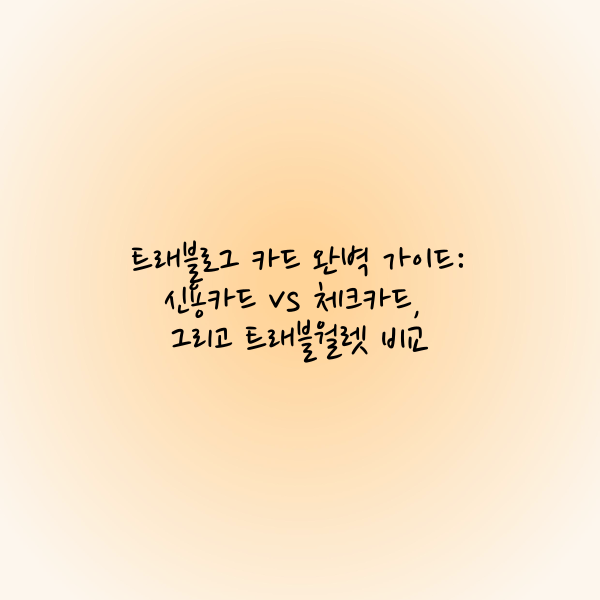 트래블로그 카드 완벽 가이드:
신용카드 vs 체크카드,
그리고 트래블월렛 비교